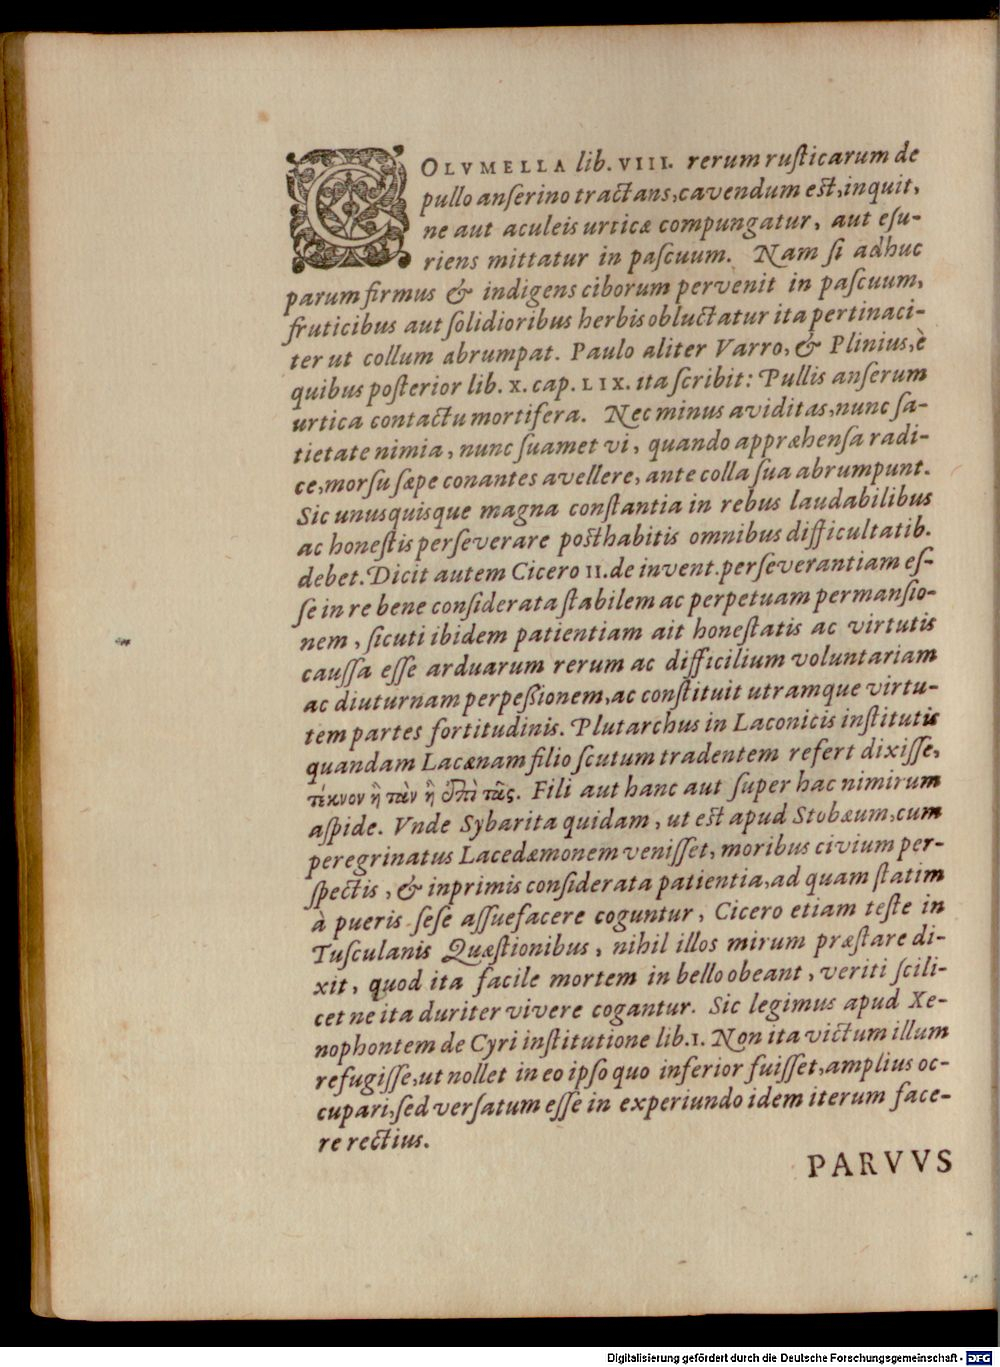 COLVMELLA lib. VIII. rerum ruſticarum de
pullo anſerino tractans, cavendum est, inquit,
ne aut aculeis urticæ compungatur, aut eſu-
riens mittatur in paſcuum. Nam ſi adhuc
parum firmus & indigens ciborum pervenit in paſcuum,
fruticibus aut ſolidioribus herbis obluctatur ita pertinaci-
ter ut collum abrumpat. Paulo aliter Varro, & Plinius, è
quibus poſterior lib. X. cap. LIX. ita ſcribit: Pullis anſerum
urtica contactu mortifera. Nec minus aviditas, nunc ſa-
tietate nimia, nunc ſuamet vi, quando appræhenſa radi-
ce, morſu ſæpe conantes avellere, ante colla ſua abrumpunt.
Sic unusquisque magna conſtantia in rebus laudabilibus
ac honeſtis perſeverare posthabitis omnibus difficultatib.
debet. Dicit autem Cicero II. de invent. perſeverantiam eſ-
ſe in re bene conſiderata ſtabilem ac perpetuam permanſio-
nem, ſicuti ibidem patientiam ait honeſtatis ac virtutis
cauſſa eſſe arduarum rerum ac difficilium voluntariam
ac diuturnam perpeßionem, ac conſtituit utramque virtu-
tem partes fortitudinis. Plutarchus in Laconicis inſtitutis
quandam Lacænam filio ſcutum tradentem refert dixiſſe,
τέκνον ἢ τὰν ἢ ἐπὶ τᾶς. Fili aut hanc aut ſuper hac nimirum
aſpide. Vnde Sybarita quidam, ut est apud Stobæum, cum
peregrinatus Lacedæmonem veniſſet, moribus civium per-
ſpectis, & inprimis conſiderata patientia, ad quam ſtatim
à pueris ſeſe aſſuefacere coguntur, Cicero etiam teſte in
Tuſculanis Quæſtionibus, nihil illos mirum præſtare di-
xit, quod ita facile mortem in bello obeant, veriti ſcili-
cet ne ita duriter vivere cogantur. Sic legimus apud Xe-
nophontem de Cyri inſtitutione lib. I. Non ita victum illum
refugiſſe, ut nollet in eo ipſo quo inferior fuiſſet, amplius oc-
cupari, ſed verſatum eſſe in experiundo idem iterum face-
re rectius.
PARVVS
Digitalisierung gefördert durch die Deutsche Forschungsgemeinschaft - DFG